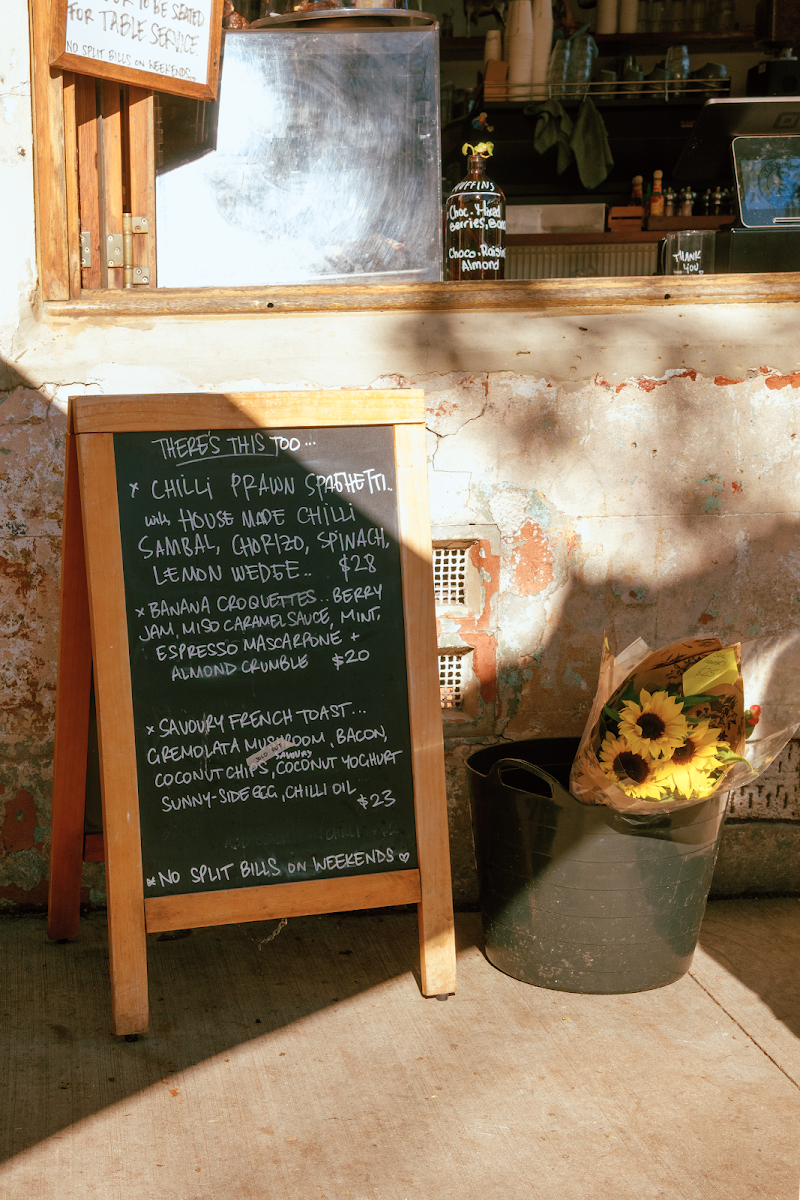 TO BE SEATED
FOR TABLE SERVICE
NO SPLIT BILLS ON WEEKENDS...
MUFFINS
Choc. Mixed
Berries,
Choco. Raisin
Almond
THANK
YOU
THERE'S THIS TOO ...
x CHILLI PRAWN SPAGHETTI..
with HOUSE MADE CHILLI
SAMBAL, CHORIZO, SPINACH,
LEMON WEDGE.. $28
x BANANA CROQUETTES.. BERRY
JAM, MISO CARAMEL SAUCE, MINT,
ESPRESSO MASCARPONE +
ALMOND CRUMBLE $20
x SAVOURY FRENCH TOAST...
GREMOLATA MUSHROOM, BACON,
SAVOURY
COCONUT CHIPS, COCONUT YOGHURT
SUNNY-SIDE EGG, CHILLI OIL
$23
* NO SPLIT BILLS ON WEEKENDS ♡